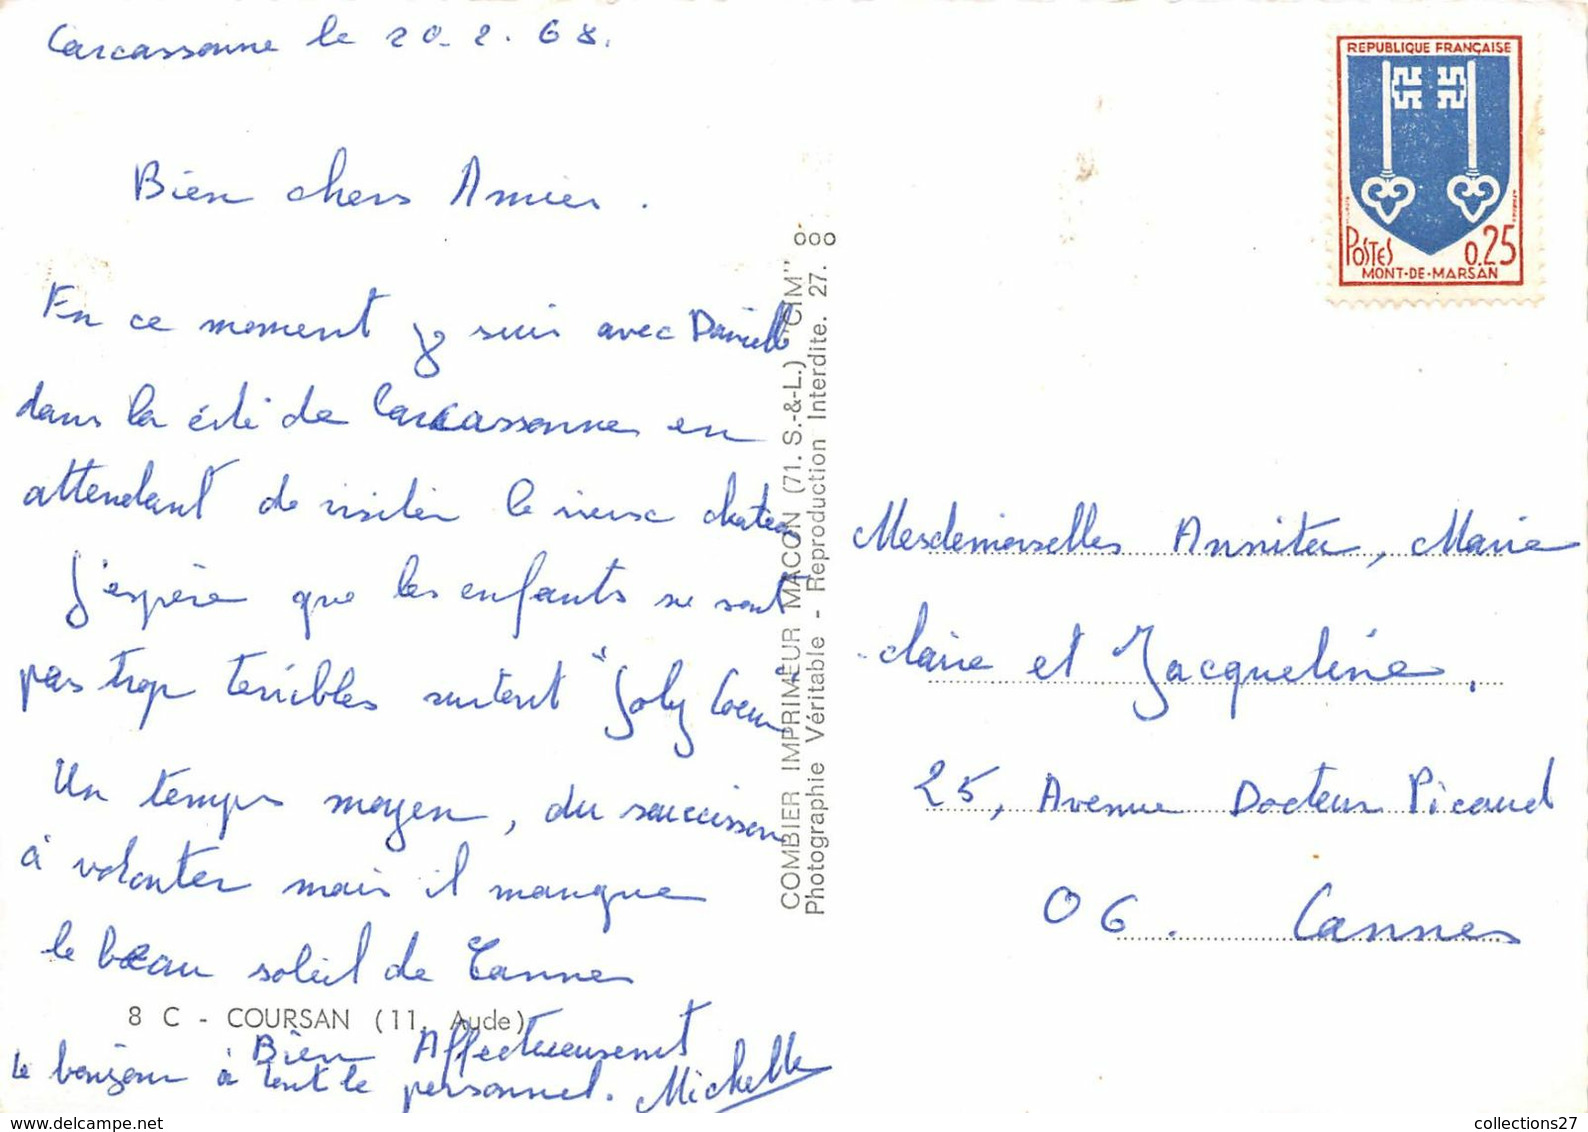 Carcassonne le 20-2.68.
Bien chers Amies.
En ce moment je suis avec Danielle
dans la cité de Carcassonne en
attendant de visiter le vieux chateau
J'espère que les enfants ne sont
pas trop terribles surtout "Joly Coeur"
Un temps moyen, du saucisson
à volonter mais il manque
le beau soleil de Cannes
8 C - COURSAN (11. Aude)
Bien Affectueusement
le bonjour à tout le personnel. Michelle
COMBIER IMPRIMEUR MACON (71. S.-&-L.) "CIM"
Photographie Véritable - Reproduction Interdite. 27. 000
REPUBLIQUE FRANÇAISE
POSTES 0.25
MONT-DE-MARSAN
Mesdemoiselles Annita, Marie
claire et Jacqueline.
25, Avenue Docteur Picaud
06. Cannes
collections27